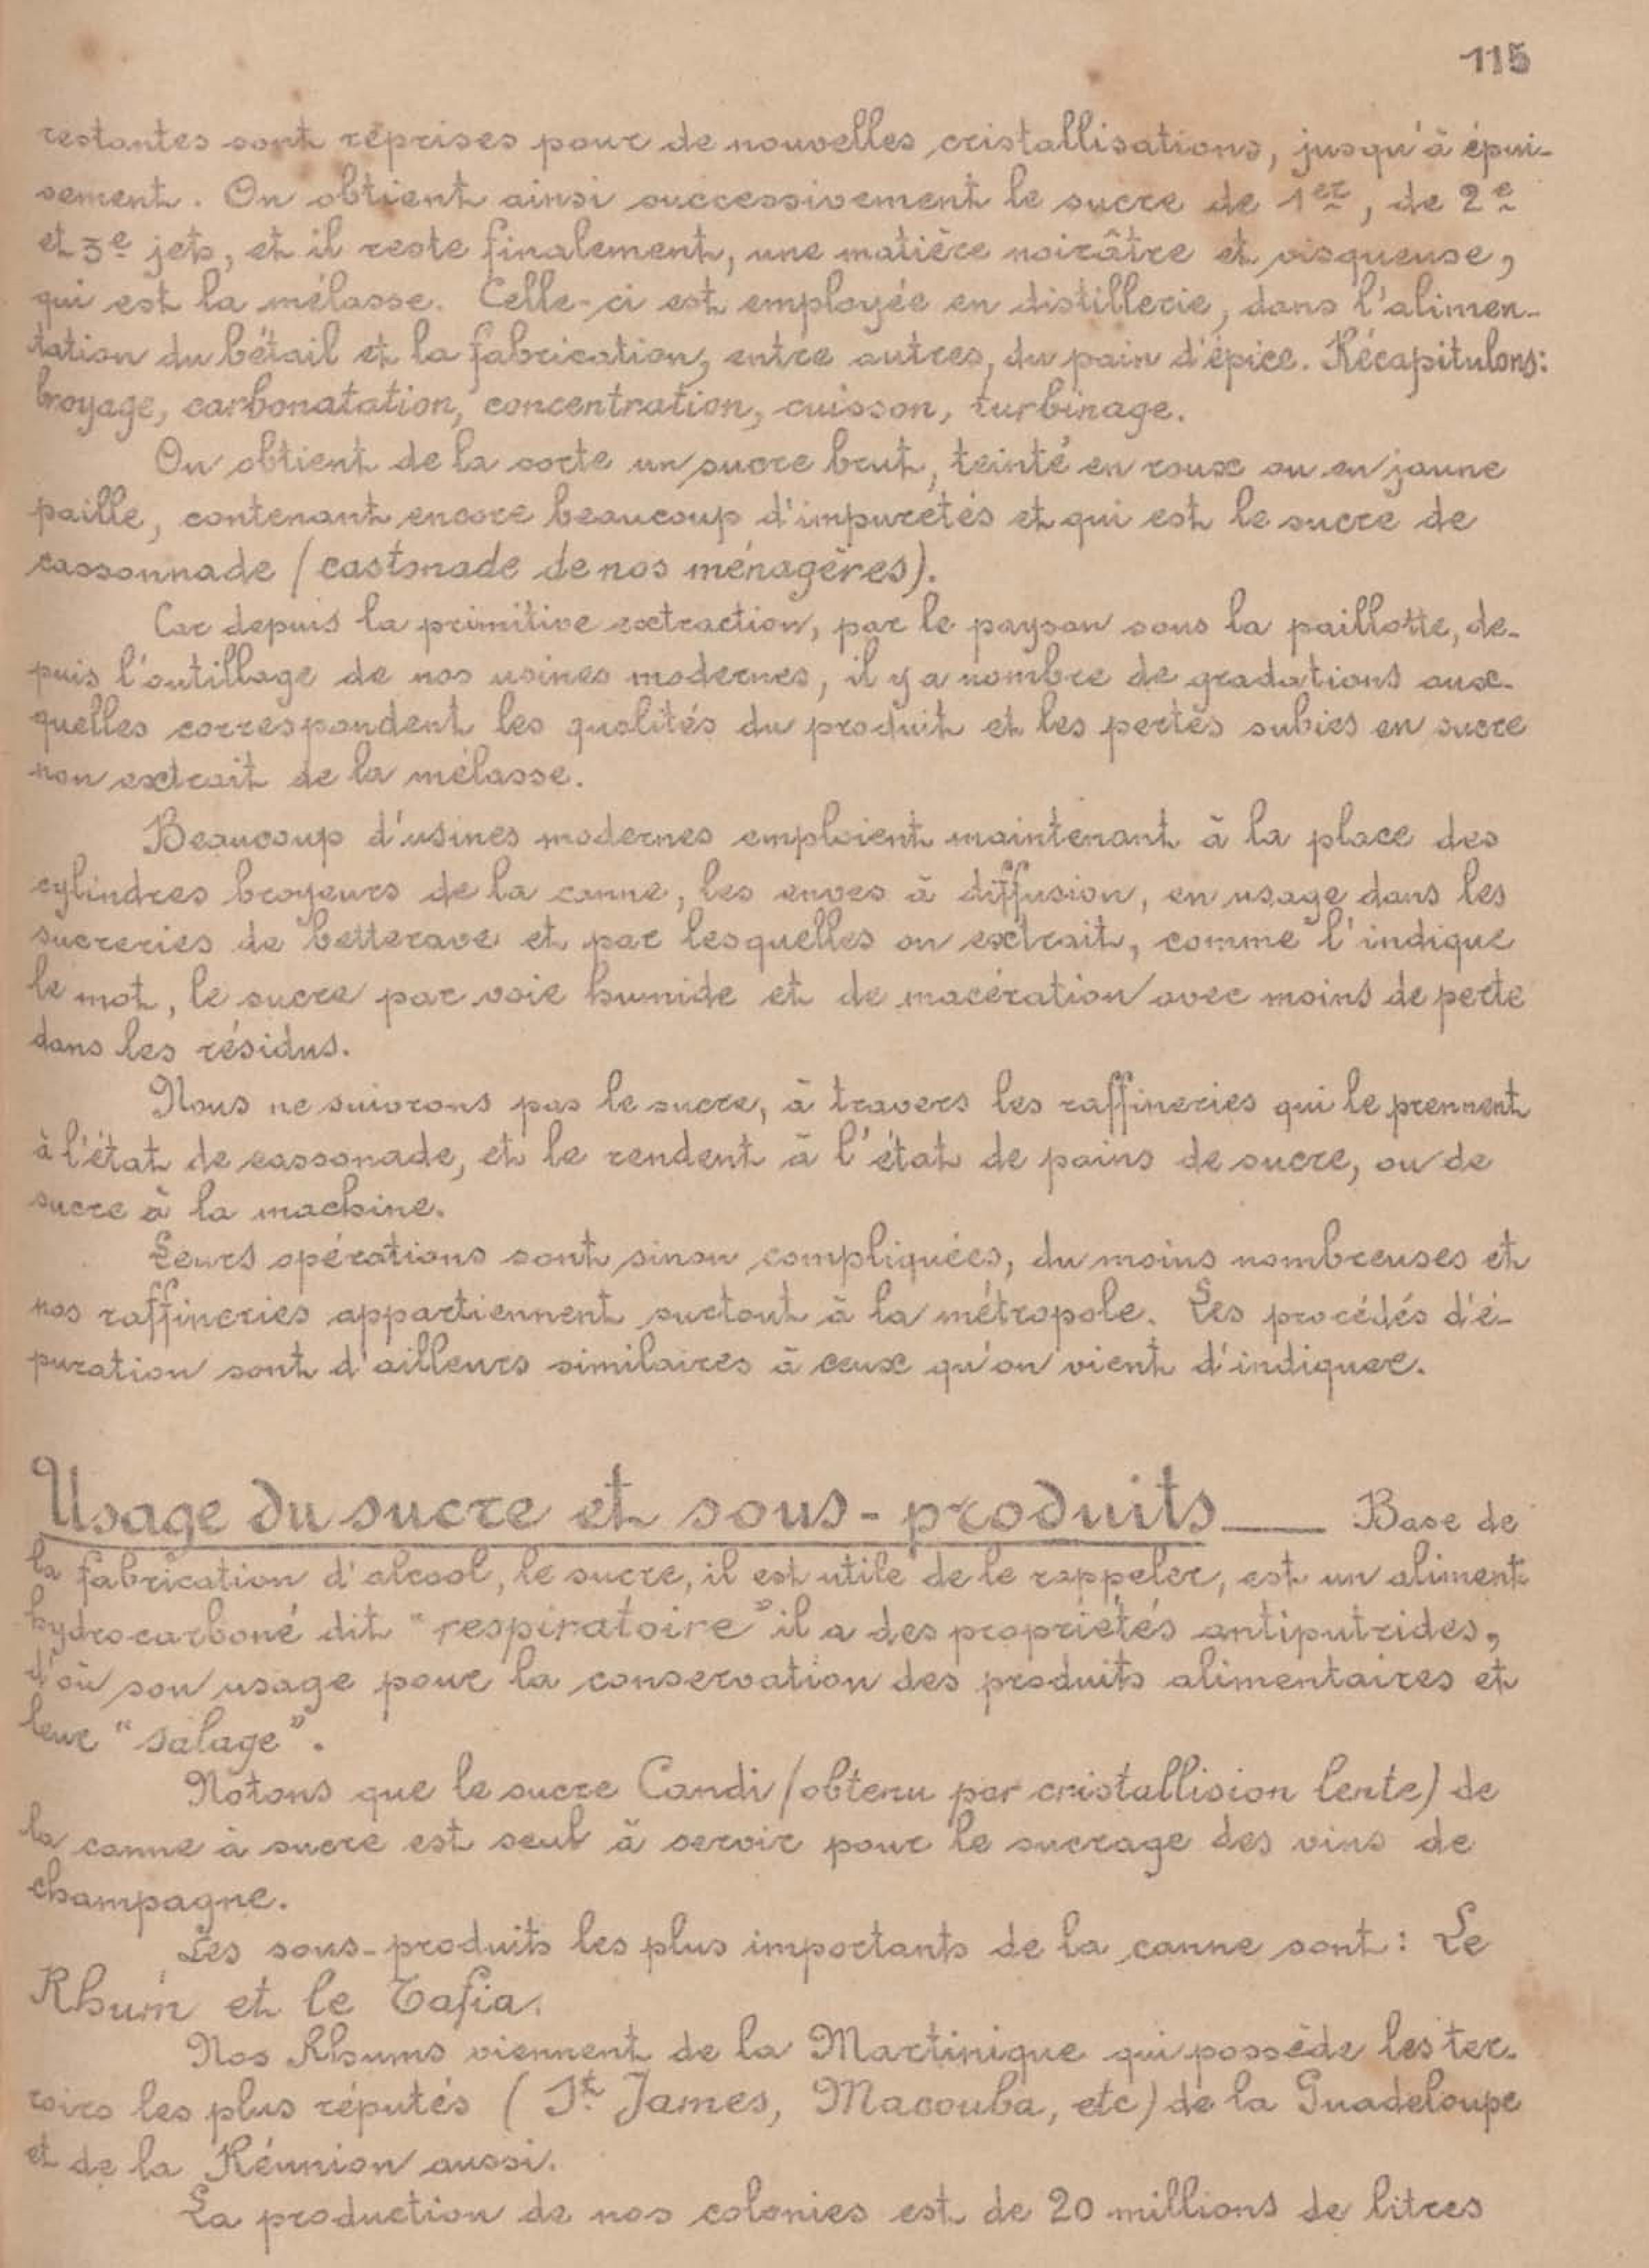 115
restantes sont reprises pour de nouvelles cristallisations, jusqu'à épui-
sement. On obtient ainsi successivement le sucre de 1er, de 2e
et 3e jets, et il reste finalement, une matière noirâtre et visqueuse,
qui est la mélasse. Celle-ci est employée en distillerie, dans l'alimen-
tation du bétail et la fabrication, entre autres, du pain d'épice. Récapitulons:
broyage, carbonatation, concentration, cuisson, turbinage.
On obtient de la sorte un sucre brut, teinté en roux ou en jaune
paille, contenant encore beaucoup d'impuretés et qui est le sucre de
cassonnade (castonade de nos ménagères).
Car depuis la primitive extraction, par le paysan sous la paillotte, de-
puis l'outillage de nos usines modernes, il y a nombre de gradations aux-
quelles correspondent les qualités du produit et les pertes subies en sucre
non extrait de la mélasse.
Beaucoup d'usines modernes emploient maintenant à la place des
cylindres broyeurs de la canne, les cuves à diffusion, en usage dans les
sucreries de betterave et par lesquelles on extrait, comme l'indique
le mot, le sucre par voie humide et de macération avec moins de perte
dans les résidus.
Nous ne suivrons pas le sucre, à travers les raffineries qui le prennent
à l'état de cassonade, et le rendent à l'état de pains de sucre, ou de
sucre à la machine.
Leurs opérations sont sinon compliquées, du moins nombreuses et
nos raffineries appartiennent surtout à la métropole. Les procédés d'é-
puration sont d'ailleurs similaires à ceux qu'on vient d'indiquer.
Usage du sucre et sous-produits — Base de
la fabrication d'alcool, le sucre, il est utile de le rappeler, est un aliment
hydrocarboné dit "respiratoire" il a des propriétés antiputrides,
d'où son usage pour la conservation des produits alimentaires et
leur "salage".
Notons que le sucre Candi (obtenu par cristallision lente) de
la canne à sucre est seul à servir pour le sucrage des vins de
champagne.
Les sous-produits les plus importants de la canne sont : Le
Rhum et le Tafia.
Nos Rhums viennent de la Martinique qui possède les ter-
roirs les plus réputés (St James, Macouba, etc) de la Guadeloupe
et de la Réunion aussi.
La production de nos colonies est de 20 millions de litres